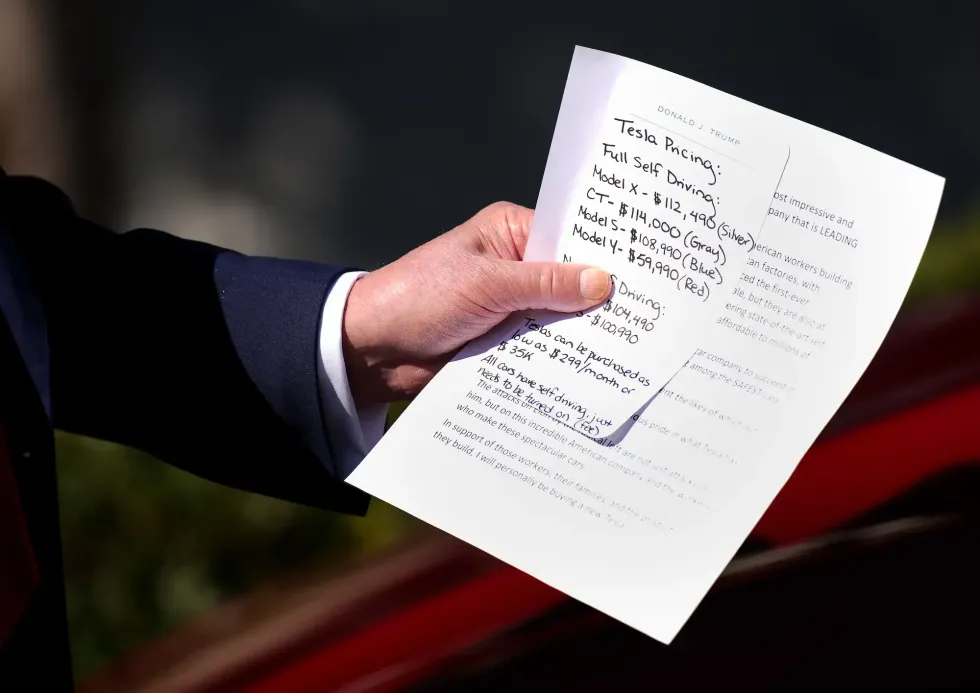 DONALD J. TRUMP
Tesla Pricing:
Full Self Driving:
Model X - $112,490 (Silver)
CT- $114,000 (Gray)
Model S- $108,990 (Blue)
Model Y- $59,990 (Red)
Driving:
$104,490
- $100,990
Teslas can be purchased as
low as $299/month or
$35K
All cars have self driving, just
needs to be turned on (fee)
ost impressive and
pany that is LEADING
erican workers building
can factories, with
ced the first-ever
ale, but they are also at
ering state-of-the-art self
affordable to millions of
ar company to succeed in
among the SAFEST cars
ent the likes of which
us pride in what Tesla has
The attacks on left are not just attacks on
him, but on this incredible American company, and the workers
who make these spectacular cars.
In support of those workers, their families, and the
they build, I will personally be buying a new Tesla